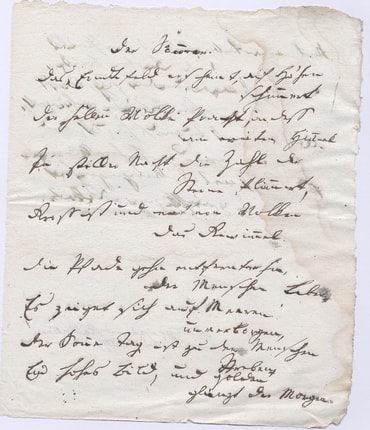 Der Sommer.
Das Erndtefeld erscheint, auf Höhen
schimmert
Der hellen Wolke Pracht, indeß
am weiten Himmel
In stiller Nacht die Zahl der
Sterne flimmert,
Groß ist und weit von Wolken
das Gewimmel.
Die Pfade gehn entfernter hin,
der Menschen Leben
Es zeiget sich auf Meeren
unverborgen,
Der Sonne Tag ist zu der Menschen
Streben
Ein hohes Bild, und golden
glänzt der Morgen.